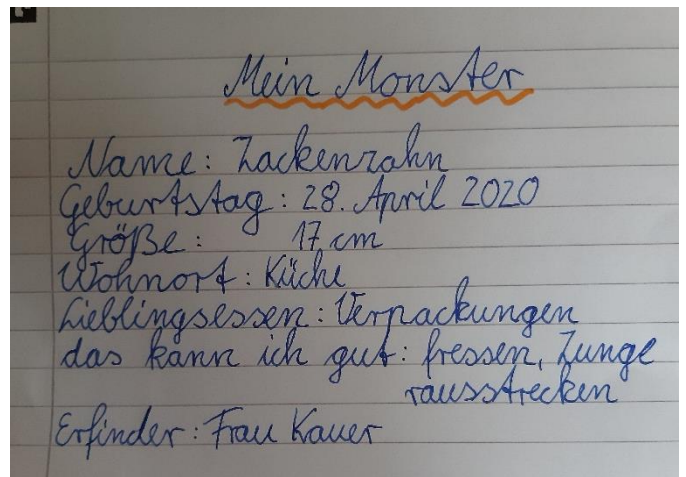 Mein Monster
Name: Zackenzahn
Geburtstag: 28. April 2020
Größe: 17 cm
Wohnort: Küche
Lieblingsessen: Verpackungen
das kann ich gut: fressen, Zunge
rausstrecken
Erfinder: Frau Kauer